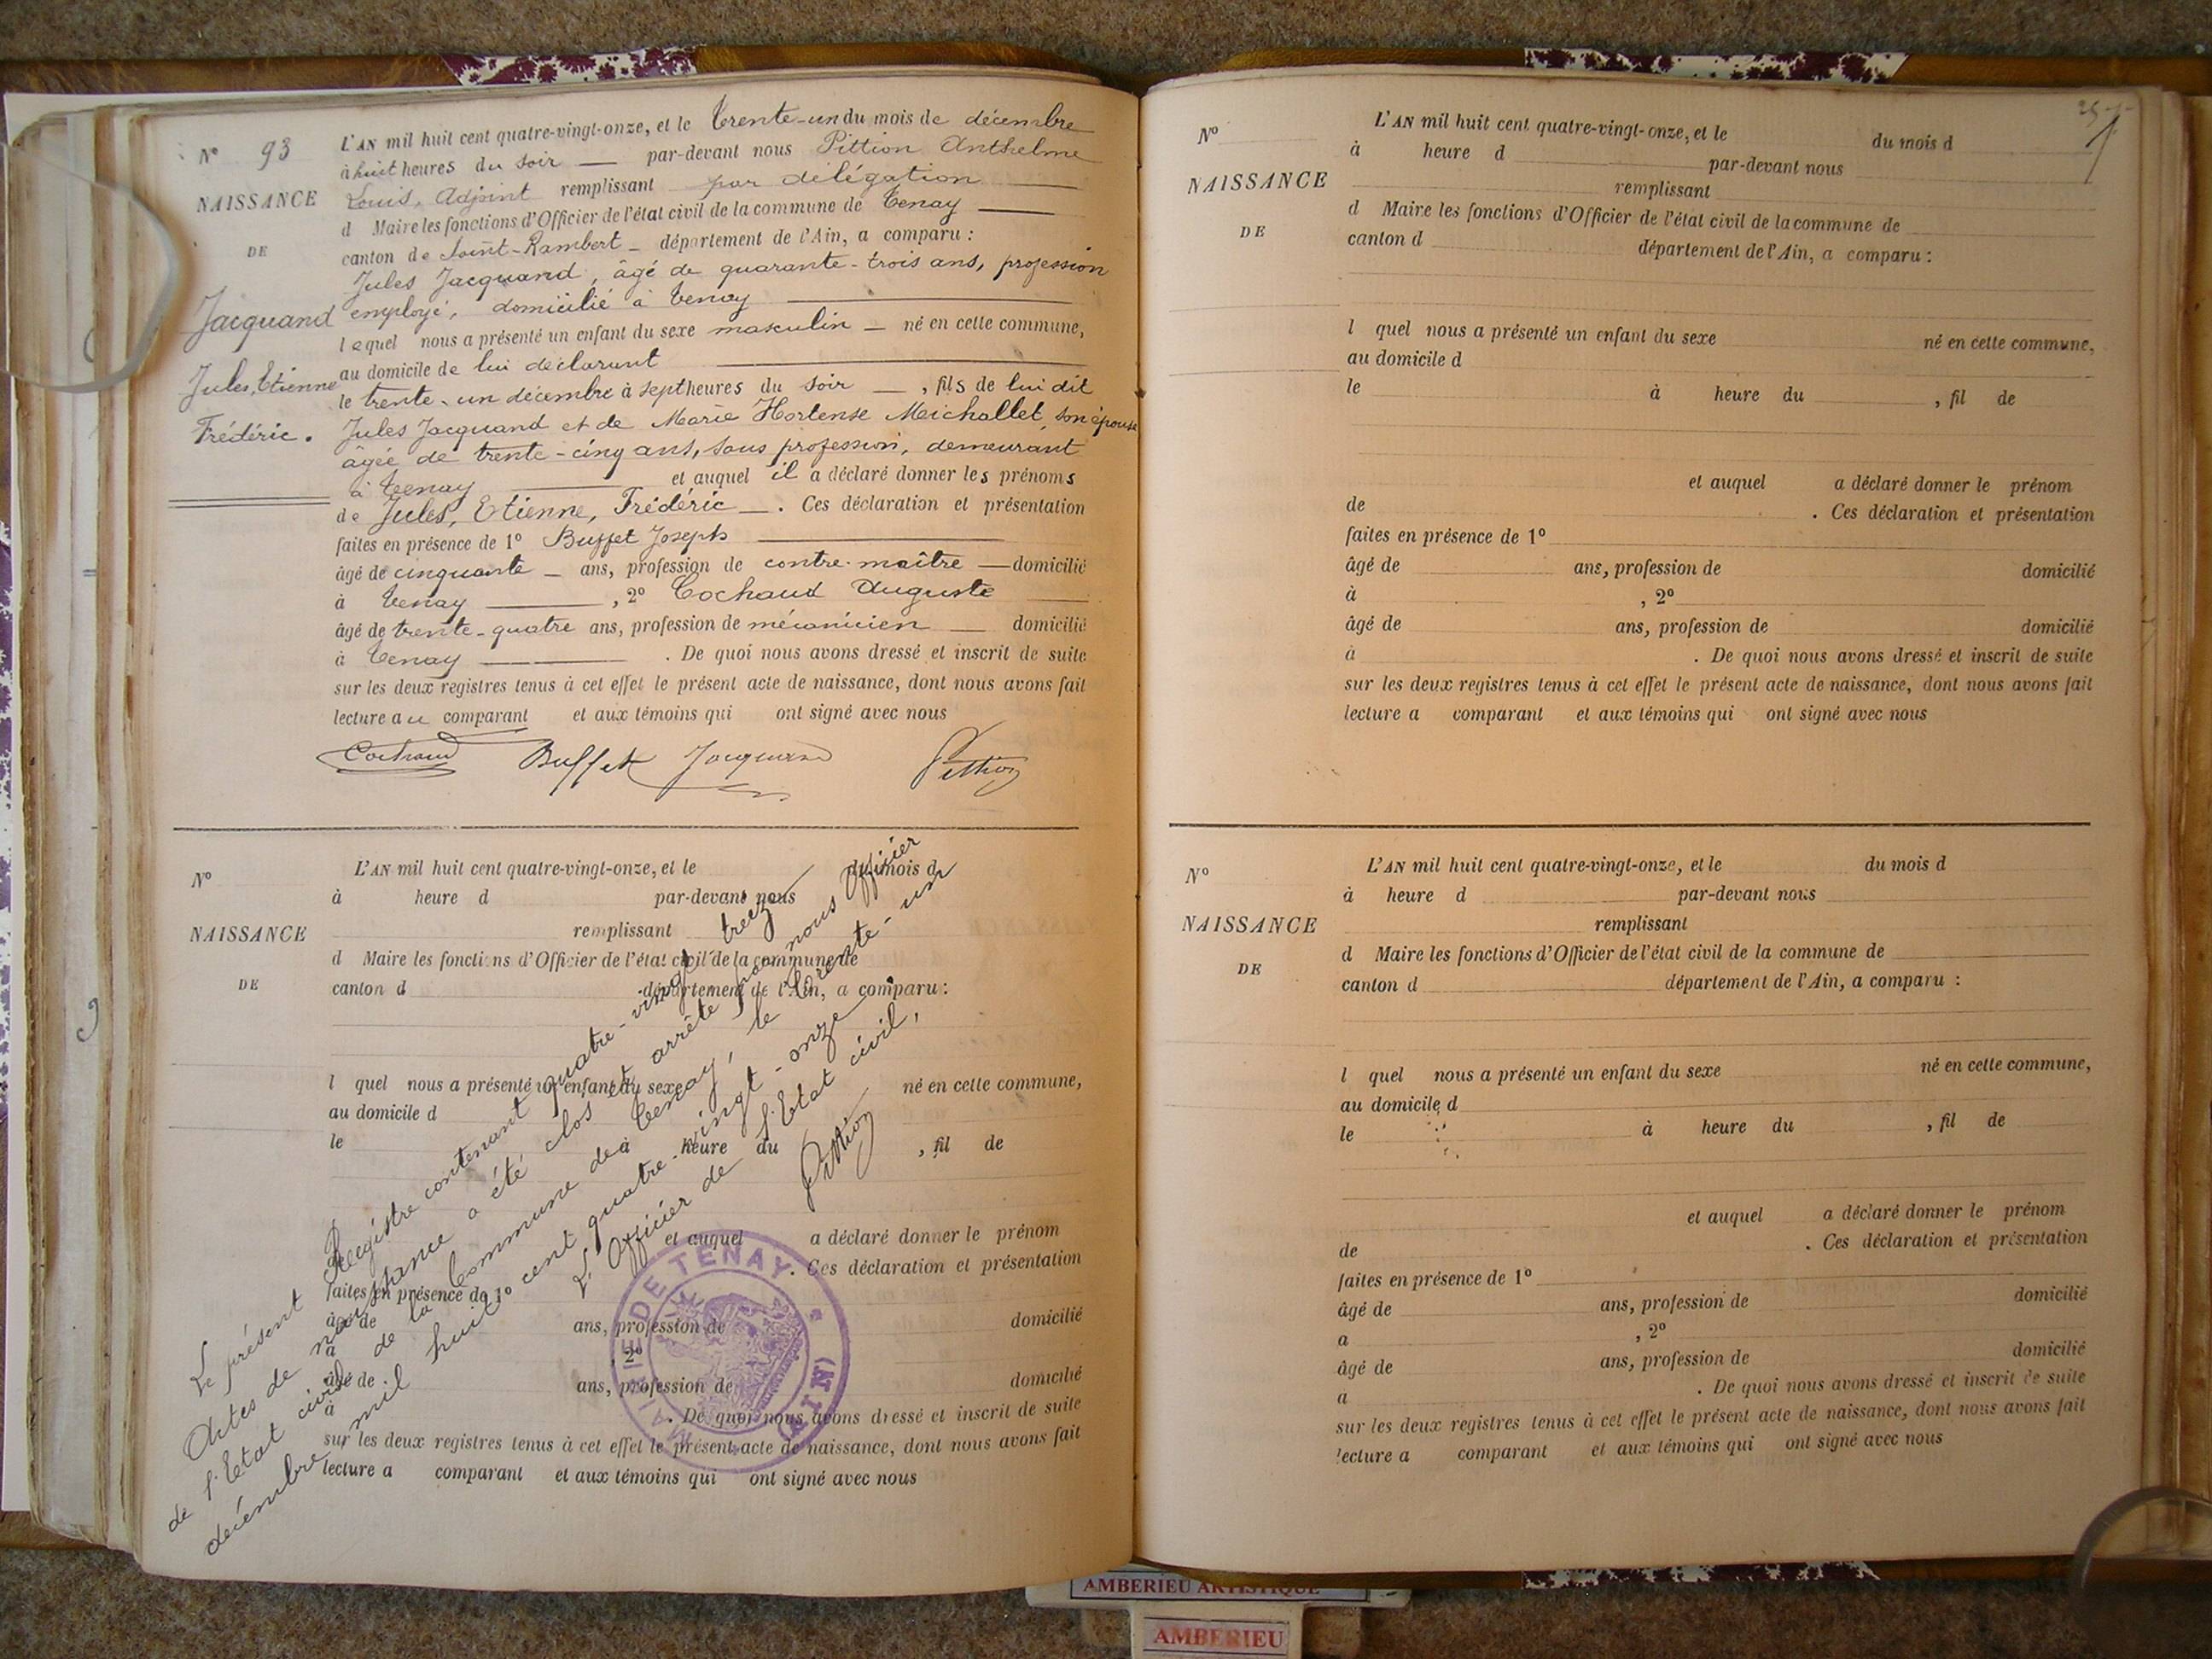 N° 93
NAISSANCE
DE
Jacquand
Jules, Etienne
Frédéric.
L'AN mil huit cent quatre-vingt-onze, et le trente-un du mois de décembre
à huit heures du soir — par-devant nous Pittion Anthelme
Louis, Adjoint remplissant par délégation —
d Maire les fonctions d'Officier de l'état civil de la commune de Tenay —
canton de Saint-Rambert — département de l'Ain, a comparu :
Jules Jacquand, âgé de quarante-trois ans, profession
employé, domicilié à Tenay —
lequel nous a présenté un enfant du sexe masculin — né en cette commune,
au domicile de lui déclarant —
le trente-un décembre à sept heures du soir —, fils de lui dit
Jules Jacquand et de Marie Hortense Michallet, son épouse
âgée de trente-cinq ans, sans profession, demeurant
à Tenay — et auquel il a déclaré donner les prénoms
de Jules, Etienne, Frédéric —. Ces déclaration et présentation
faites en présence de 1° Buffet Joseph —
âgé de cinquante — ans, profession de contre-maître — domicilié
à Tenay —, 2° Cochaud Auguste —
âgé de trente-quatre ans, profession de mécanicien — domicilié
à Tenay — . De quoi nous avons dressé et inscrit de suite
sur les deux registres tenus à cet effet le présent acte de naissance, dont nous avons fait
lecture au comparant et aux témoins qui ont signé avec nous
Cochaud Buffet Jacquand Pittion
N°
NAISSANCE
DE
L'AN mil huit cent quatre-vingt-onze, et le du mois d
à heure d par-devant nous
remplissant
d Maire les fonctions d'Officier de l'état civil de la commune de
canton d département de l'Ain, a comparu :
l quel nous a présenté un enfant du sexe né en cette commune,
au domicile d
le à heure du , fil de
et auquel a déclaré donner le prénom
de . Ces déclaration et présentation
faites en présence de 1°
âgé de ans, profession de domicilié
à , 2°
âgé de ans, profession de domicilié
à . De quoi nous avons dressé et inscrit de suite
sur les deux registres tenus à cet effet le présent acte de naissance, dont nous avons fait
lecture a comparant et aux témoins qui ont signé avec nous
Le présent Régistre contenant quatre-vingt treize
Actes de naissance a été clos et arrêté par nous Officier
de l'Etat civil de la Commune de Tenay, le trente-un
décembre mil huit cent quatre-vingt-onze.
L'Officier de l'Etat civil,
Pittion
MAIRIE DE TENAY (AIN)
N°
NAISSANCE
DE
L'AN mil huit cent quatre-vingt-onze, et le du mois d
à heure d par-devant nous
remplissant
d Maire les fonctions d'Officier de l'état civil de la commune de
canton d département de l'Ain, a comparu :
l quel nous a présenté un enfant du sexe né en cette commune,
au domicile d
le à heure du , fil de
et auquel a déclaré donner le prénom
de . Ces déclaration et présentation
faites en présence de 1°
âgé de ans, profession de domicilié
à , 2°
âgé de ans, profession de domicilié
à . De quoi nous avons dressé et inscrit de suite
sur les deux registres tenus à cet effet le présent acte de naissance, dont nous avons fait
lecture a comparant et aux témoins qui ont signé avec nous
N°
NAISSANCE
DE
L'AN mil huit cent quatre-vingt-onze, et le du mois d
à heure d par-devant nous
remplissant
d Maire les fonctions d'Officier de l'état civil de la commune de
canton d département de l'Ain, a comparu :
l quel nous a présenté un enfant du sexe né en cette commune,
au domicile d
le à heure du , fil de
et auquel a déclaré donner le prénom
de . Ces déclaration et présentation
faites en présence de 1°
âgé de ans, profession de domicilié
a , 2°
âgé de ans, profession de domicilié
a . De quoi nous avons dressé et inscrit de suite
sur les deux registres tenus à cet effet le présent acte de naissance, dont nous avons fait
lecture a comparant et aux témoins qui ont signé avec nous
AMBERIEU ARTISTIQUE
AMBERIEU